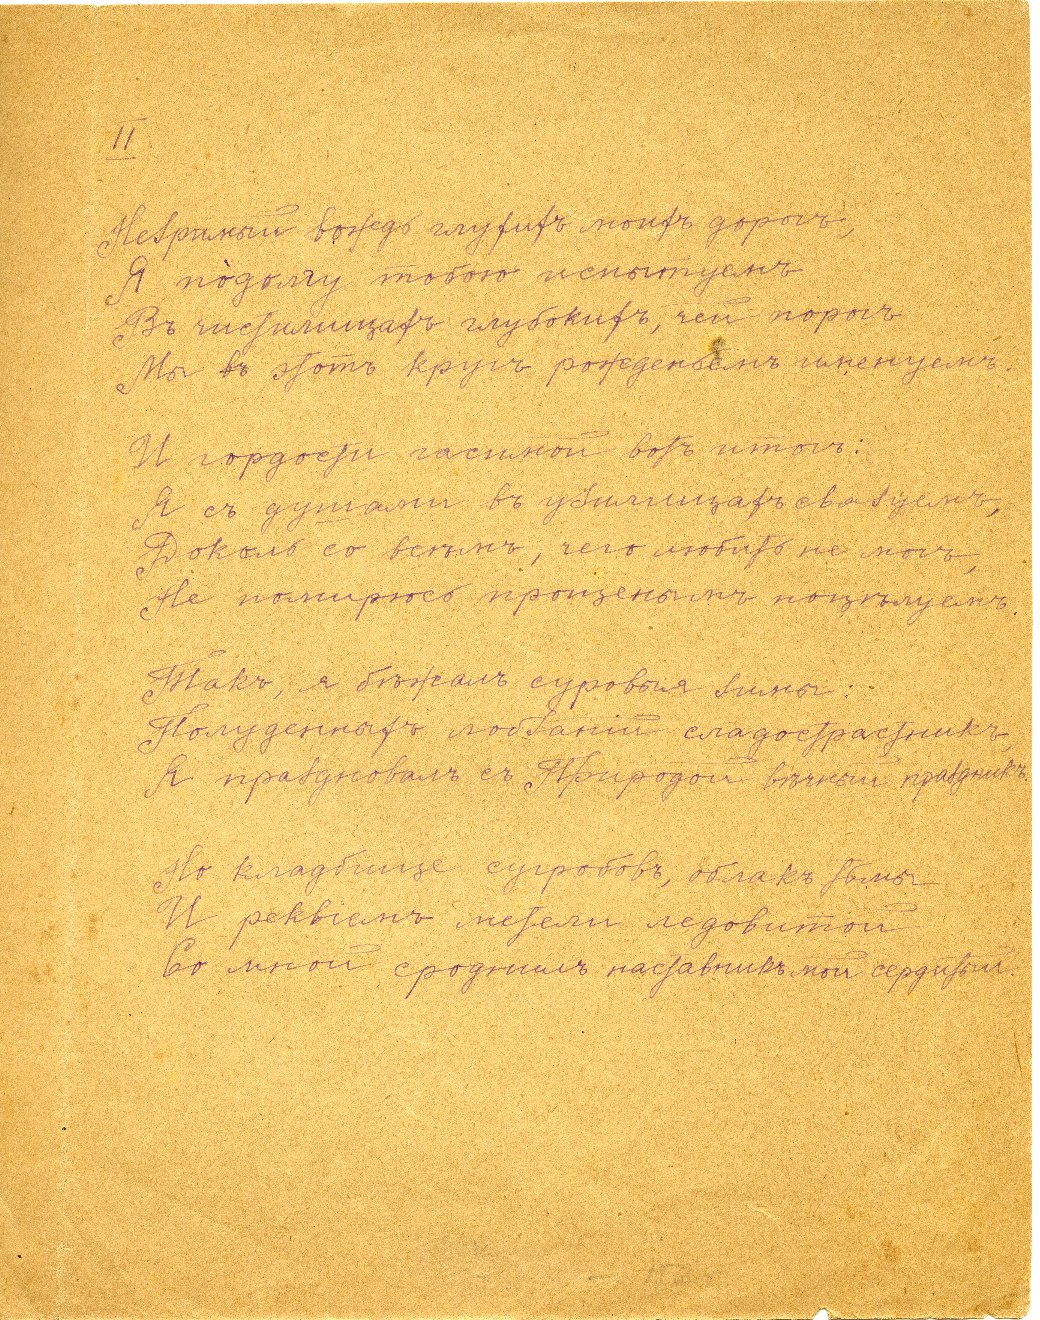 II.
Незримый вождь глухихъ моихъ дорогъ,
Я подолгу тобою испытуемъ
Въ чистилищахъ глубокихъ, чей порогъ
Мы въ этотъ кругъ рожденьемъ именуемъ.
И гордости гасимой вотъ итогъ:
Я съ душами въ узилищахъ связуемъ,
Доколь со всѣмъ, чего любить не могъ,
Не помирюсь прощенымъ поцѣлуемъ.
Такъ, я бѣжалъ суровыя зимы:
Полуденныхъ лобзаній сладострастникъ,
Я праздновалъ съ Природой вѣчный праздникъ.
Но кладбище сугробовъ, облакъ тьмы
И реквіемъ метели ледовитой
Со мной сроднилъ наставникъ мой сердитый.